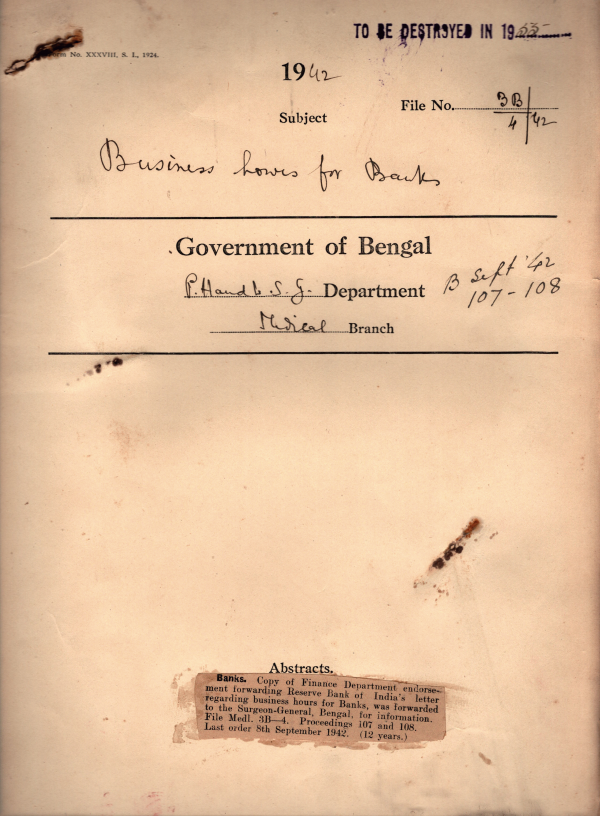 TO BE DESTROYED IN 1955
Form No. XXXVIII, S. I., 1924.
1942
File No. 3B
4 / 42
Subject
Business hours for Banks
Government of Bengal
P. H and L. S. G. Department
B Sept '42
107-108
Medical Branch
Abstracts.
Banks. Copy of Finance Department endorse-
ment forwarding Reserve Bank of India's letter
regarding business hours for Banks, was forwarded
to the Surgeon-General, Bengal, for information.
File Medl. 3B—4. Proceedings 107 and 108.
Last order 8th September 1942. (12 years.)